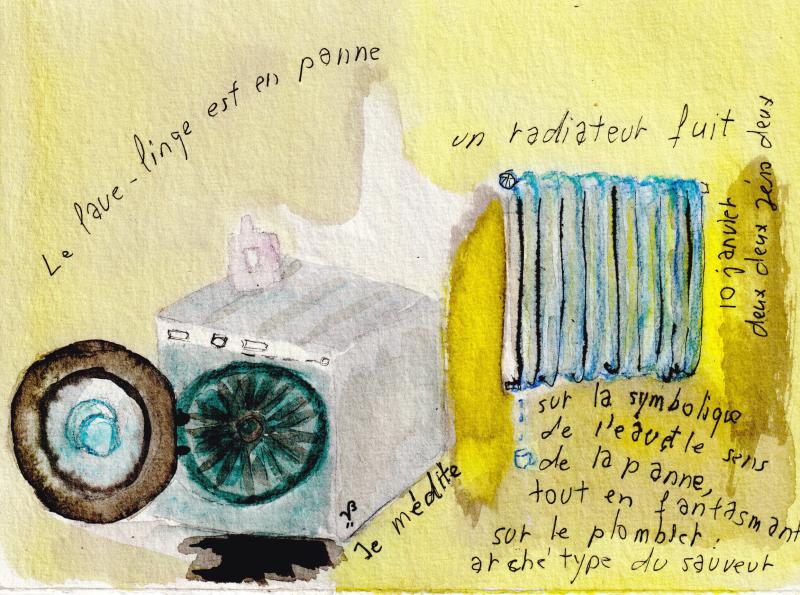 Le lave-linge est en panne
un radiateur fuit
10 janvier
deux deux zéro deux
Je médite
sur la symbolique
de l'eau et le sens
de la panne,
tout en fantasmant
sur le plombier:
archétype du sauveur